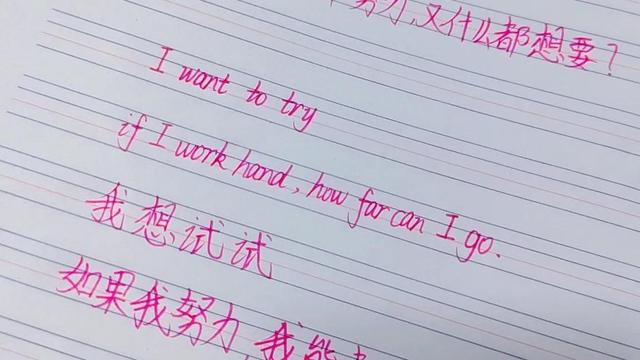 努力,又什么都想要?
I want to try
if I work hand, how far can I go.
我想试试
如果我努力,我能